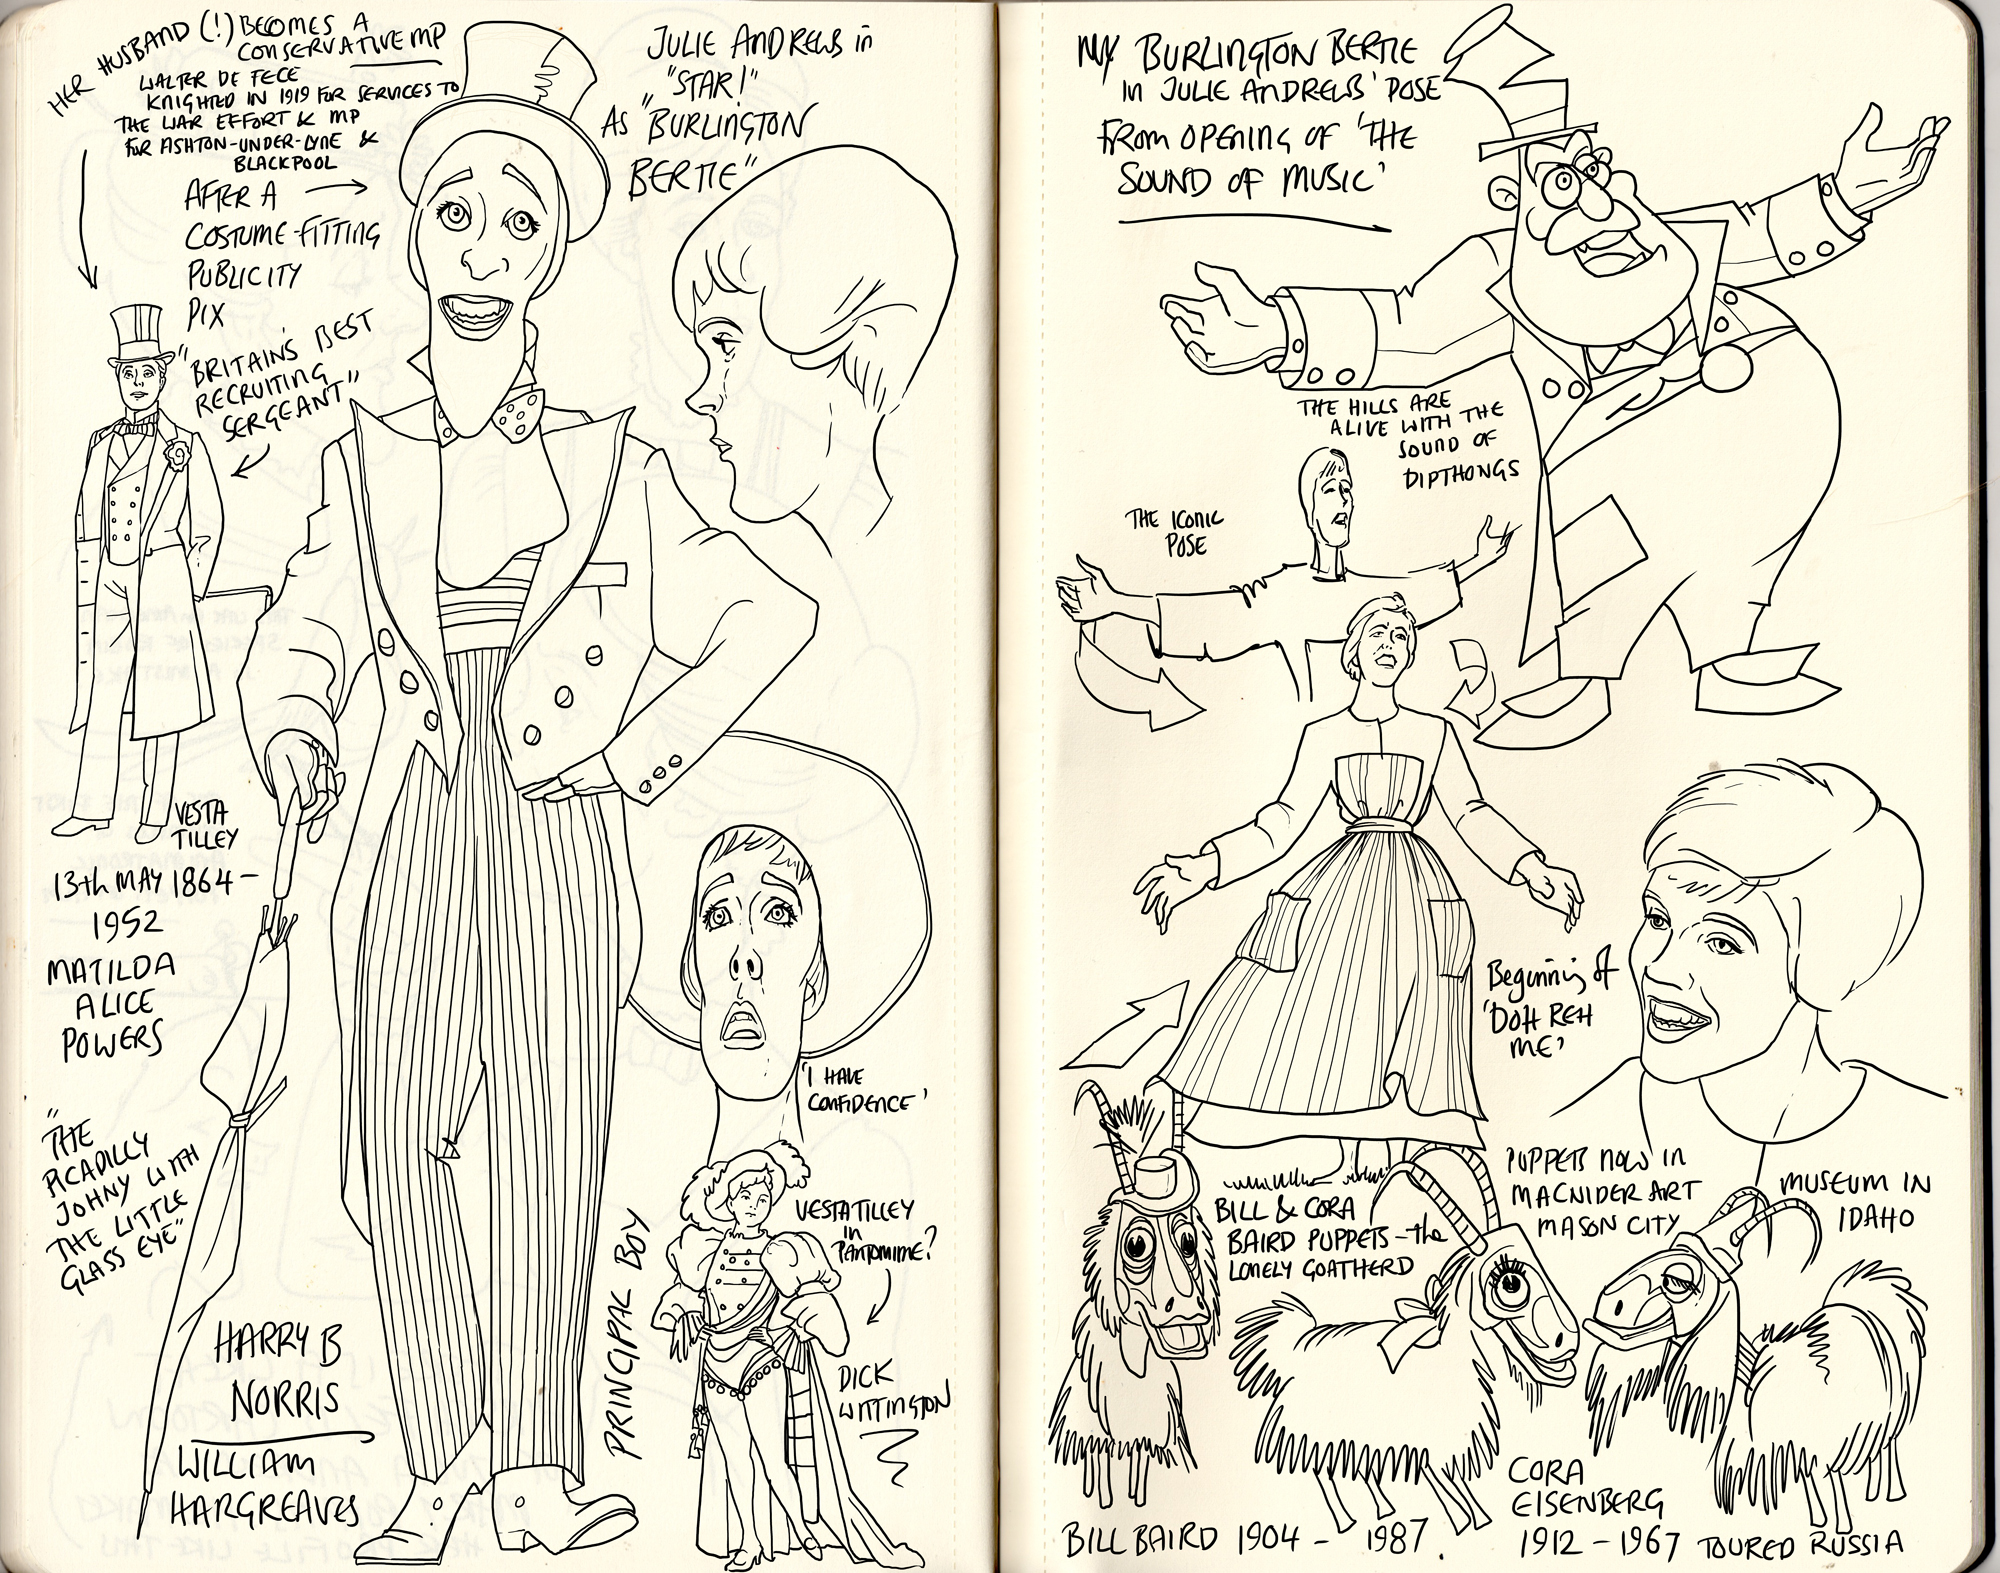 HER HUSBAND (!) BECOMES A
CONSERVATIVE MP
WALTER DE FECE
KNIGHTED IN 1919 FOR SERVICES TO
THE WAR EFFORT & MP
FOR ASHTON-UNDER-LYNE &
BLACKPOOL
AFTER A
COSTUME-FITTING
PUBLICITY
PIX
"BRITAIN'S BEST
RECRUITING
SERGEANT"
VESTA
TILLEY
13th MAY 1864 –
1952
MATILDA
ALICE
POWERS
"THE
PICADILLY
JOHNY WITH
THE LITTLE
GLASS EYE"
HARRY B
NORRIS
WILLIAM
HARGREAVES
JULIE ANDREWS in
"STAR!"
AS "BURLINGTON
BERTIE"
'I HAVE
CONFIDENCE'
PRINCIPAL BOY
VESTA TILLEY
in
PANTOMIME?
DICK
WITTINGTON
MY BURLINGTON BERTIE
in JULIE ANDREWS' POSE
FROM OPENING OF 'THE
SOUND OF MUSIC'
THE HILLS ARE
ALIVE WITH THE
SOUND OF
DIPTHONGS
THE ICONIC
POSE
Beginning of
'DOH REH
ME'
BILL & CORA
BAIRD PUPPETS – the
LONELY GOATHERD
PUPPETS NOW in
MACNIDER ART
MASON CITY
MUSEUM IN
IDAHO
BILL BAIRD 1904 – 1987.
CORA
EISENBERG
1912 – 1967 TOURED RUSSIA